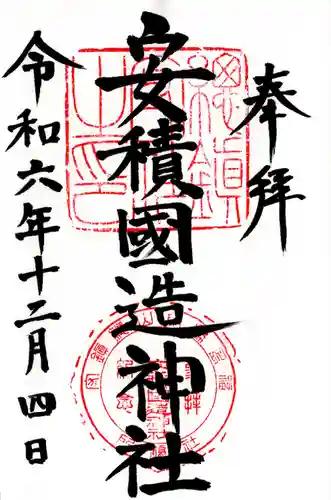 奉拝
安積國造神社
令和六年十二月四日